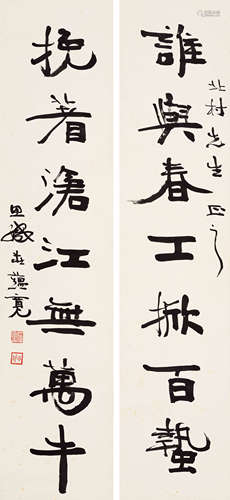 北村先生正之
誰與春工掀百蟄
挽著滄江無萬牛
思緘莊蘊寬